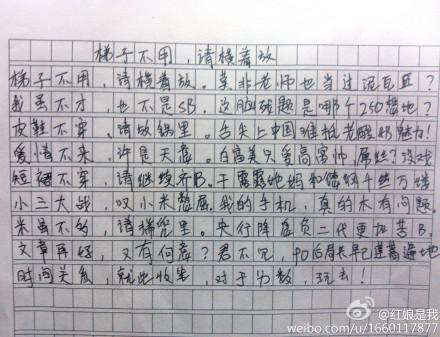 梯子不用，请横着放
梯子不用，请横着放。莫非老师也当过泥瓦匠？
我虽不才，也不是SB。这脑残题是哪个250想地？
皮鞋不穿，请放锅里。舌尖上中国难抵老酸奶魅力！
爱情不来，许是天意。白富美只爱高富帅，屌丝？没戏
短裙不穿，请继续齐B。干露露她妈和你俩千丝万缕
小三大战，叹小米憋屈。我的手机，真的木有问题。
米虽不的，请揣兜里。央行降息负二代更加苦B。
文章再好，又有何意？君不见，90后局长早已遍地
时间关系，就此收笔，对于分数，玩去！
@红娘是我
weibo.com/u/1660117877